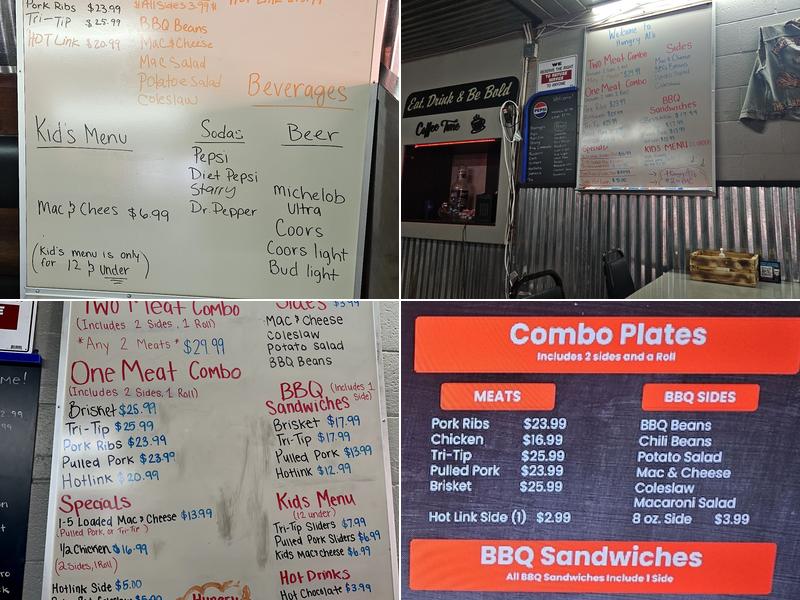 Pork Ribs $23.99
Tri-Tip $25.99
HOT Link $20.99
All Sides 3.99
BBQ Beans
Mac & Cheese
Mac Salad
Potatoe Salad
Coleslaw
Beverages
Kid's Menu
Mac & Chees $6.99
(Kid's menu is only
for 12 & under)
Sodas
Pepsi
Diet Pepsi
Starry
Dr. Pepper
Beer
Michelob
Ultra
Coors
Coors light
Bud light
Eat, Drink & Be Bold
Coffee Time
WE RESERVE THE RIGHT
TO REFUSE
SERVICE
pepsi
Welcome
Welcome to
Hungry Al's
Two Meat Combo
One Meat Combo
Specials
Sides
Mac & Cheese
BBQ Beans
Potato Salad
Coleslaw
BBQ
Sandwiches
KIDS MENU
Two Meat Combo
(Includes 2 Sides, 1 Roll)
*Any 2 Meats* $29.99
One Meat Combo
(Includes 2 Sides, 1 Roll)
Brisket $25.99
Tri-Tip $25.99
Pork Ribs $23.99
Pulled Pork $23.99
Hotlink $20.99
Specials
1-5 Loaded Mac & Cheese $13.99
(Pulled Pork, or Tri-Tip)
1/2 Chicken $16.99
(2 Sides, 1 Roll)
Hotlink Side $5.00
Hungry
Sides $3.99
Mac & Cheese
Coleslaw
Potato Salad
BBQ Beans
BBQ (Includes 1
Sandwiches Side)
Brisket $17.99
Tri-Tip $17.99
Pulled Pork $13.99
Hotlink $12.99
Kids Menu
(12 under)
Tri-Tip Sliders $7.99
Pulled Pork Sliders $6.99
Kids Mac & cheese $6.99
Hot Drinks
Hot Chocolate $3.99
Combo Plates
Includes 2 sides and a Roll
MEATS
Pork Ribs $23.99
Chicken $16.99
Tri-Tip $25.99
Pulled Pork $23.99
Brisket $25.99
Hot Link Side (1) $2.99
BBQ SIDES
BBQ Beans
Chili Beans
Potato Salad
Mac & Cheese
Coleslaw
Macaroni Salad
8 oz. Side $3.99
BBQ Sandwiches
All BBQ Sandwiches Include 1 Side